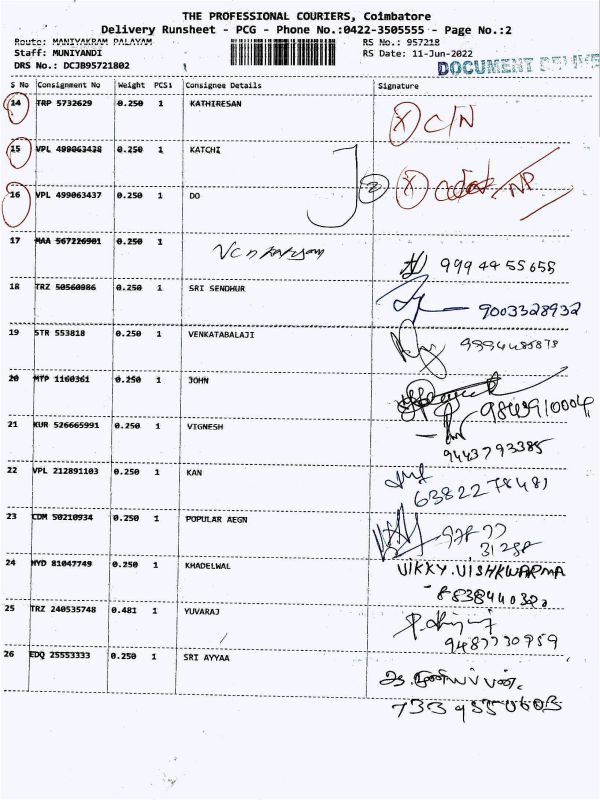 THE PROFESSIONAL COURIERS, Coimbatore
Delivery Runsheet - PCG - Phone No.:0422-3505555 - Page No.:2
Route: MANIYAKRAM PALAYAM RS No.: 957218
Staff: MUNIYANDI RS Date: 11-Jun-2022
DRS No.: DCJB95721802 DOCUMENT
S No Consignment No Weight PCS: Consignee Details Signature
14 TRP 5732629 0.250 1 KATHIRESAN
C/N
15 VPL 499063438 0.250 1 KATCHI
16 VPL 499063437 0.250 1 DO
2
/NP
17 MAA 567226901 0.250 1
9994455655
18 TRZ 50560086 0.250 1 SRI SENDHUR
9003328932
19 STR 553818 0.250 1 VENKATABALAJI
20 MTP 1160361 0.250 1 JOHN
9843910004
21 KUR 526665991 0.250 1 VIGNESH
9443793385
22 VPL 212891103 0.250 1 KAN
6382278481
23 CDM 50210934 0.250 1 POPULAR AEGN
24 HYD 81047749 0.250 1 KHADELWAL
VIKKY.VISHKWARMA
25 TRZ 240535748 0.481 1 YUVARAJ
9487730959
26 EDQ 25553333 0.250 1 SRI AYYAA